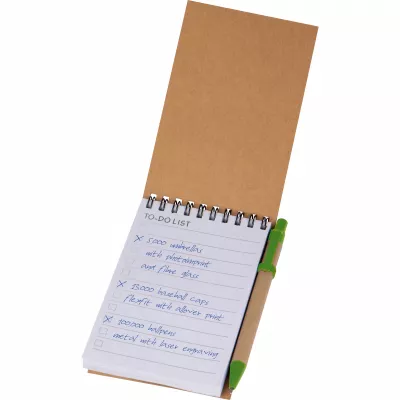 TO-DO LIST
5.000 umbrellas
with photoprint
and fibre glass
15.000 baseball caps
flexfit with allover print
100.000 ballpens
metal with laser engraving